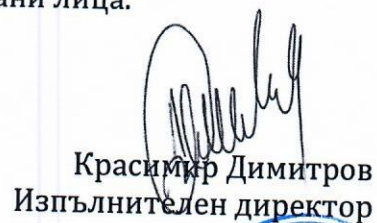 лица.
Красимир Димитров
Изпълнителен директор